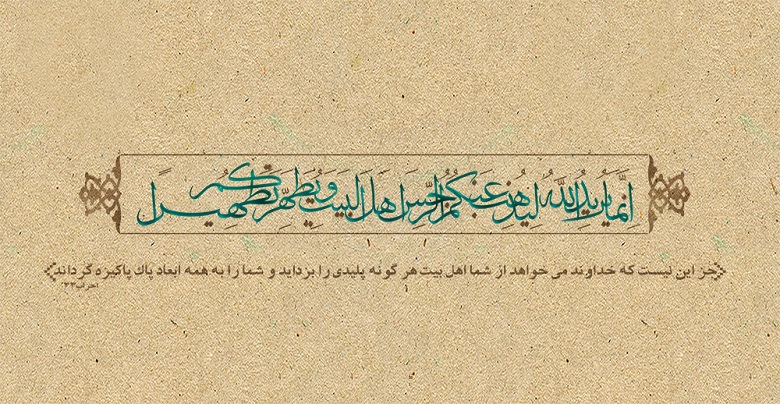 إِنَّمَا يُرِيدُ اللَّهُ لِيُذْهِبَ عَنكُمُ الرِّجْسَ أَهْلَ الْبَيْتِ وَيُطَهِّرَكُمْ تَطْهِيرًا
جز این نیست که خداوند می خواهد از شما اهل بیت هر گونه پلیدی را بزداید و شما را به همه ابعاد پاك پاکیزه گرداند
احزاب۳۳